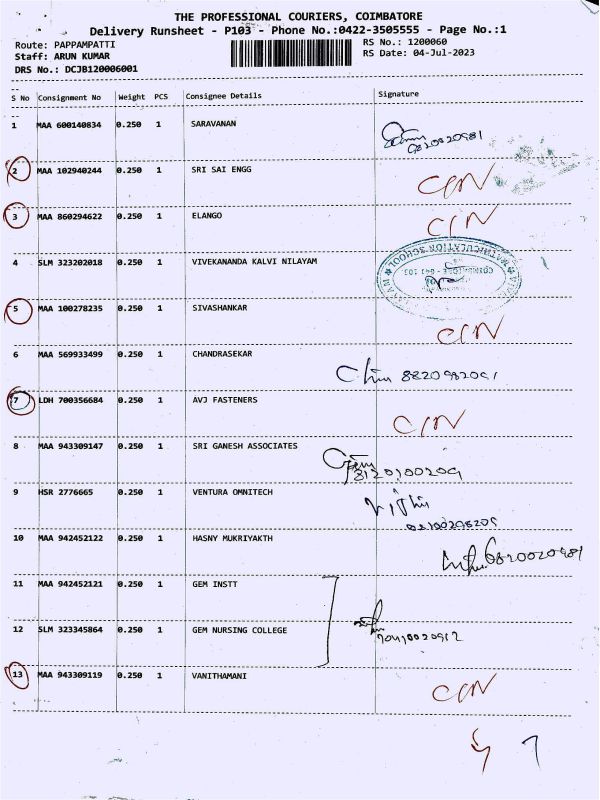 THE PROFESSIONAL COURIERS, COIMBATORE
Delivery Runsheet - P103 - Phone No.:0422-3505555 - Page No.:1
Route: PAPPAMPATTI RS No.: 1200060
Staff: ARUN KUMAR RS Date: 04-Jul-2023
DRS No.: DCJB120006001
S No Consignment No Weight PCS Consignee Details Signature
1 MAA 600140834 0.250 1 SARAVANAN
9820020981
2 MAA 102940244 0.250 1 SRI SAI ENGG
3 MAA 860294622 0.250 1 ELANGO
MATRICULATION SCHOOL
4 SLM 323202018 0.250 1 VIVEKANANDA KALVI NILAYAM
5 MAA 100278235 0.250 1 SIVASHANKAR
6 MAA 569933499 0.250 1 CHANDRASEKAR
7 LDH 700356684 0.250 1 AVJ FASTENERS
8 MAA 943309147 0.250 1 SRI GANESH ASSOCIATES
9 HSR 2776665 0.250 1 VENTURA OMNITECH
10 MAA 942452122 0.250 1 HASNY MUKRIYAKTH
11 MAA 942452121 0.250 1 GEM INSTT
12 SLM 323345864 0.250 1 GEM NURSING COLLEGE
13 MAA 943309119 0.250 1 VANITHAMANI